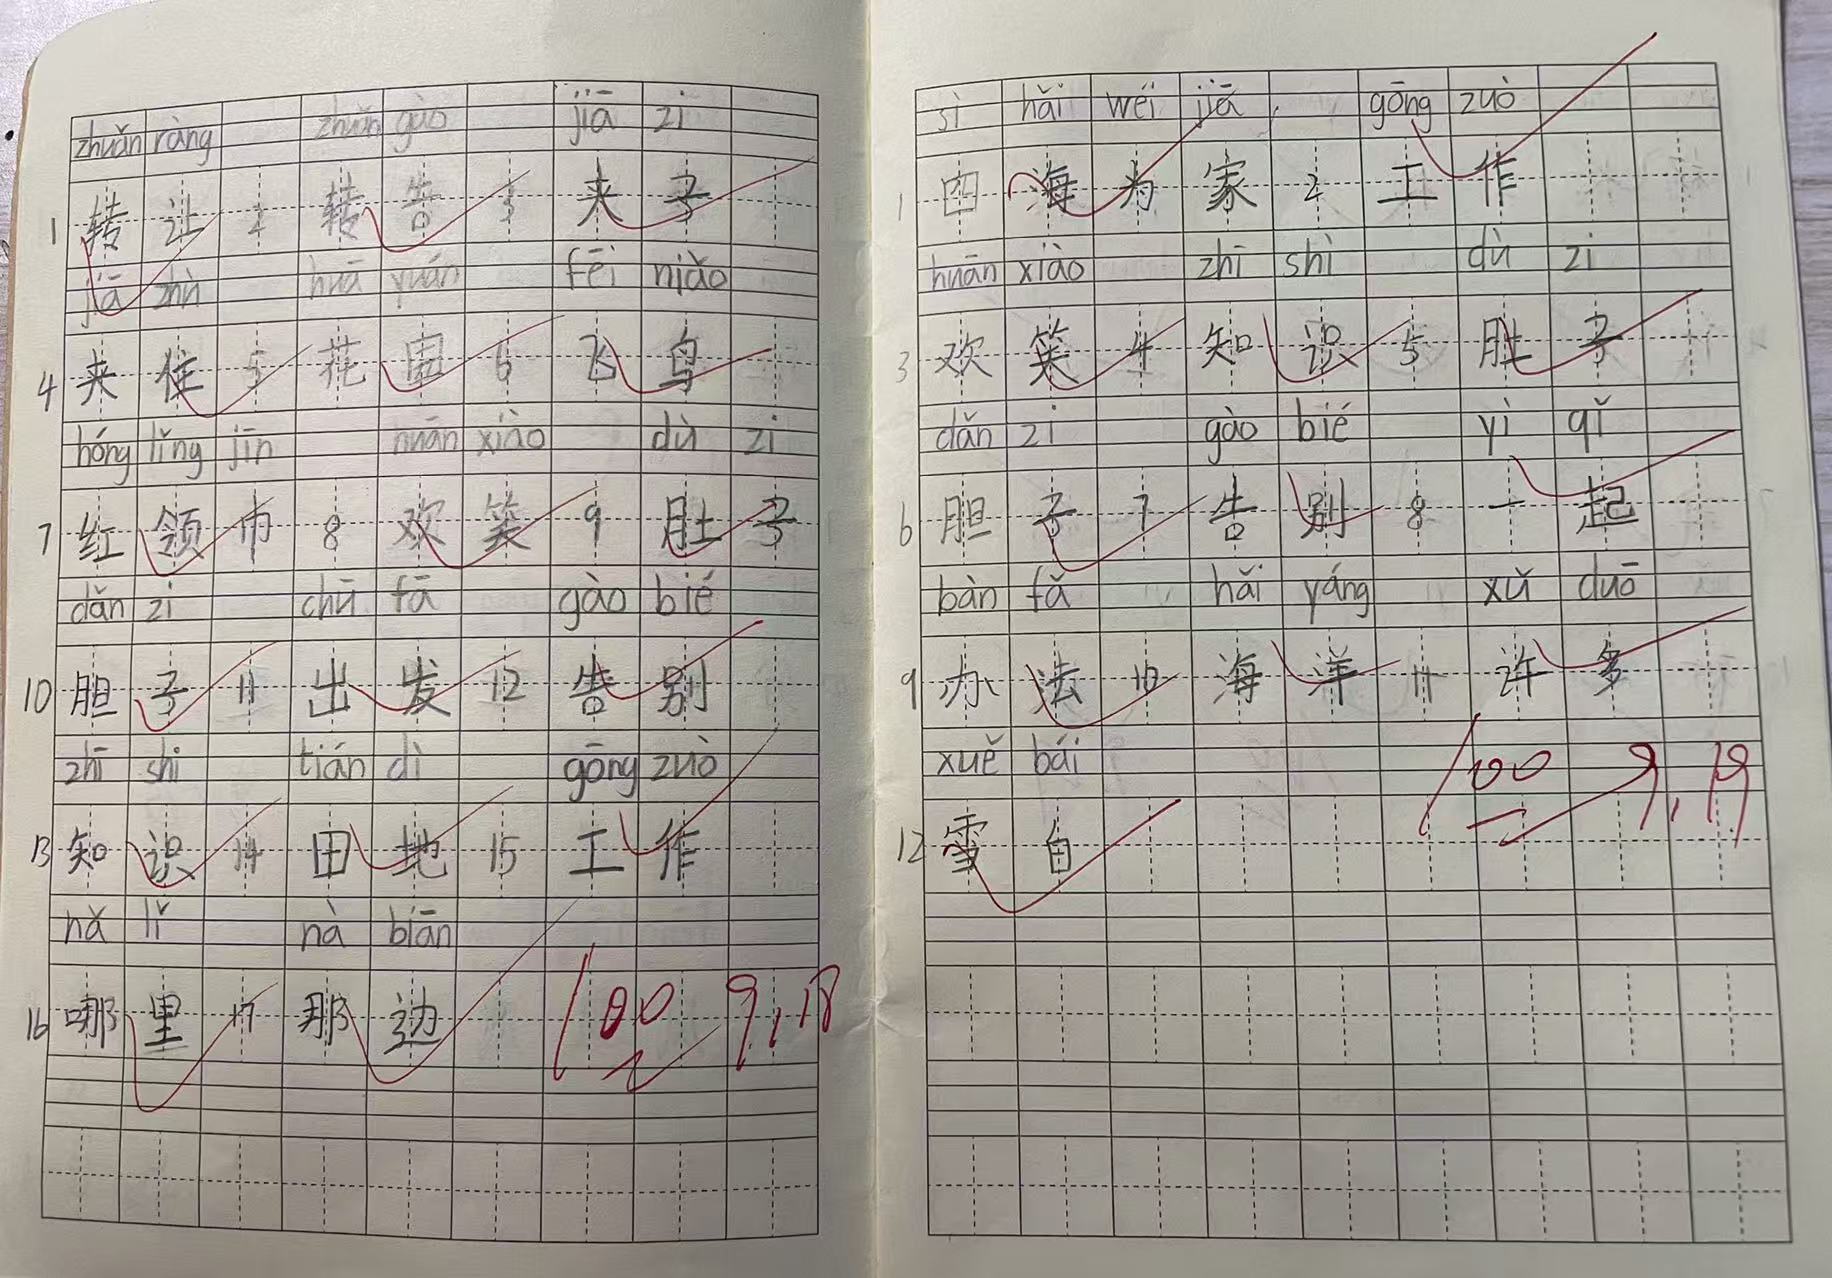 zhuǎn ràng zhuǎn gào jiā zi
1 转 让 2 转 告 3 夹 子
jiā zhù huā yuán fēi niǎo
4 夹 住 5 花 园 6 飞 鸟
hóng lǐng jīn huān xiào dù zi
7 红 领 巾 8 欢 笑 9 肚 子
dǎn zi chū fā gào bié
10 胆 子 11 出 发 12 告 别
zhī shi tián dì gōng zuò
13 知 识 14 田 地 15 工 作
nǎ lǐ nà biān
16 哪 里 17 那 边
100 9.18
sì hǎi wéi jiā gōng zuò
1 四 海 为 家 2 工 作
huān xiào zhī shi dù zi
3 欢 笑 4 知 识 5 肚 子
dǎn zi gào bié yì qǐ
6 胆 子 7 告 别 8 一 起
bàn fǎ hǎi yáng xǔ duō
9 办 法 10 海 洋 11 许 多
xuě bái
100 9.19
12 雪 白